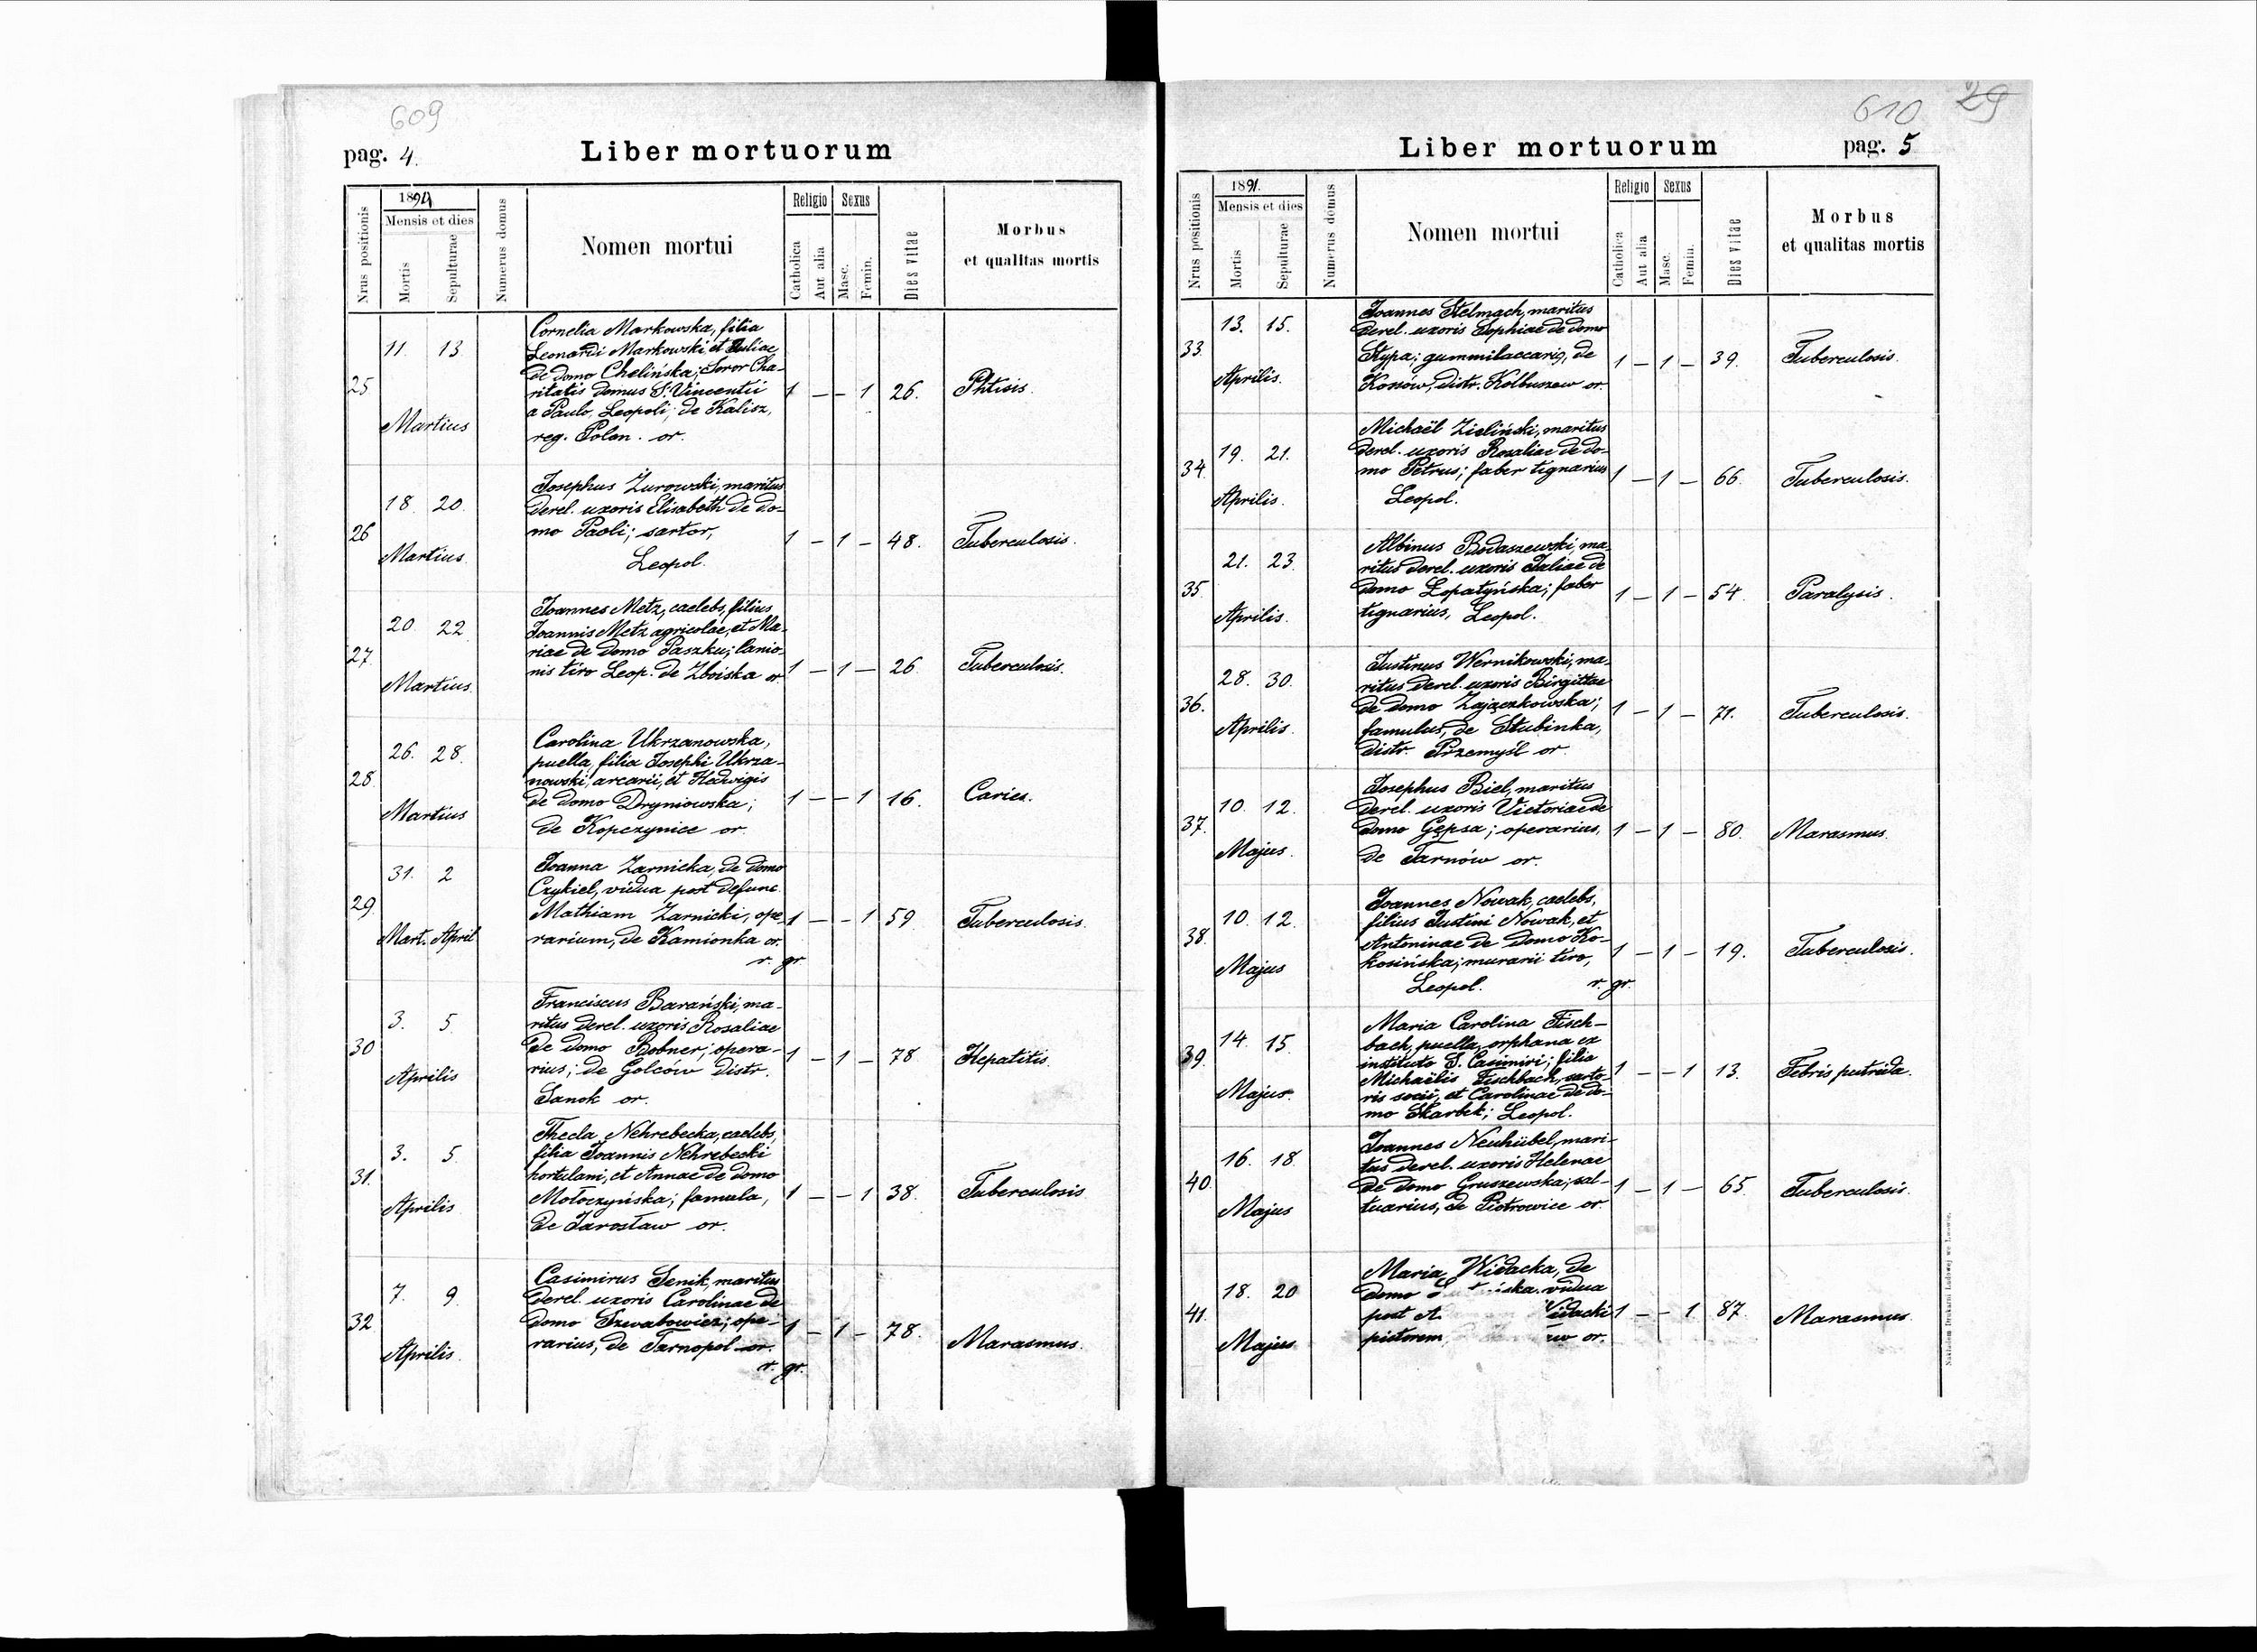 609
pag. 4. Liber mortuorum
Nrus positionis
1891
Mensis et dies
Mortis
Sepulturae
Numerus domus
Nomen mortui
Religio
Catholica
Aut alia
Sexus
Masc.
Femin.
Dies vitae
Morbus
et qualitas mortis
25
11. 13.
Martius
Cornelia Markowska, filia
Leonardi Markowski, et Juliae
de domo Chelińska; Soror Cha-
ritatis domus S. Vincentii
a Paulo, Leopoli; de Kalisz,
reg. Polon. or.
1 – – 1 26. Phtisis.
26
18. 20.
Martius
Josephus Żurowski, maritus
derel. uxoris Elisabeth de do-
mo Paoli; sartor,
Leopol.
1 – 1 – 48. Tuberculosis.
27.
20. 22.
Martius.
Joannes Metz, caelebs, filius
Joannis Metz agricolae, et Ma-
riae de domo Paszku; lanio-
nis tiro Leop. de Zboiska or.
1 – 1 – 26. Tuberculosis.
28.
26. 28.
Martius
Carolina Ukrzanowska,
puella, filia Josephi Ukrza-
nowski, arcarii, et Hedwigis
de domo Dryniowska;
de Kopczynice or.
1 – – 1 16. Caries.
29.
31. 2
Mart. April
Joanna Zarnicka, de domo
Czykiel, vidua post defunc.
Mathiam Zarnicki, ope-
rarium, de Kamionka or.
r. gr.
1 – – 1 59 Tuberculosis.
30
3. 5.
Aprilis
Franciscus Barański, ma-
ritus derel. uxoris Rosaliae
de domo Bobner; opera-
rius; de Golców distr.
Sanok or.
1 – 1 – 78 Hepatitis.
31.
3. 5.
Aprilis
Thecla Nehrebecka, caelebs,
filia Joannis Nehrebecki
hortulani, et Annae de domo
Mołoczyńska; famula,
de Jarosław or.
1 – – 1 38. Tuberculosis.
32.
7. 9.
Aprilis.
Casimirus Senik, maritus
derel. uxoris Carolinae de
domo Szwabowicz; ope-
rarius, de Tarnopol or.
r. gr.
1 – 1 – 78. Marasmus.
610 29
Liber mortuorum pag. 5
Nrus positionis
1891.
Mensis et dies
Mortis
Sepulturae
Numerus domus
Nomen mortui
Religio
Catholica
Aut alia
Sexus
Masc.
Femin.
Dies vitae
Morbus
et qualitas mortis
33.
13. 15.
Aprilis.
Joannes Stelmach, maritus
derel. uxoris Sophiae de domo
Stypa; gummilaccario, de
Kossów, distr. Kolbuszew or.
1 – 1 – 39. Tuberculosis.
34.
19. 21.
Aprilis.
Michaël Zieliński, maritus
derel. uxoris Rosaliae de do-
mo Petrus; faber tignarius
Leopol.
1 – 1 – 66. Tuberculosis.
35.
21. 23.
Aprilis.
Albinus Bodaszewski, ma-
ritus derel. uxoris Juliae de
domo Lopatyńska; faber
tignarius, Leopol.
1 – 1 – 54. Paralysis.
36.
28. 30.
Aprilis.
Justinus Wernikowski, ma-
ritus derel. uxoris Birgittae
de domo Zajączkowska;
famulus, de Stubinka,
distr. Przemyśl or.
1 – 1 – 71. Tuberculosis.
37.
10. 12.
Majus.
Josephus Biel, maritus
derel. uxoris Victoriae de
domo Gępsa; operarius,
de Tarnów or.
1 – 1 – 80. Marasmus.
38.
10. 12.
Majus
Joannes Nowak, caelebs,
filius Justini Nowak, et
Antoninae de domo Ko-
kosińska; murarii tiro,
Leopol. r. gr.
1 – 1 – 19. Tuberculosis.
39.
14. 15.
Majus.
Maria Carolina Fisch-
bach, puella, orphana ex
instituto S. Casimiri; filia
Michaëlis Fischbach, sarto-
ris socii, et Carolinae de do-
mo Skarbek; Leopol.
1 – – 1 13. Febris putrida.
40.
16. 18.
Majus
Joannes Neuhübel, mari-
tus derel. uxoris Helenae
de domo Gruszewska; sal-
tuarius, de Piotrowice or.
1 – 1 – 65. Tuberculosis.
41.
18. 20
Majus
Maria Widacka, de
domo vidua
post Widacki
pictorem or.
1 – – 1. 87. Marasmus